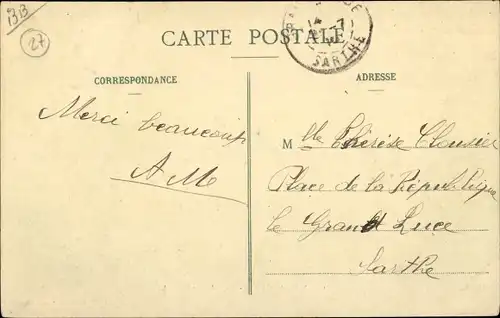 BB
27
CARTE POSTALE
SARTHE
CORRESPONDANCE
ADRESSE
Merci beaucoup
A M
Mlle Thérèse Clousier
Place de la République
le Grand Luce
Sarthe